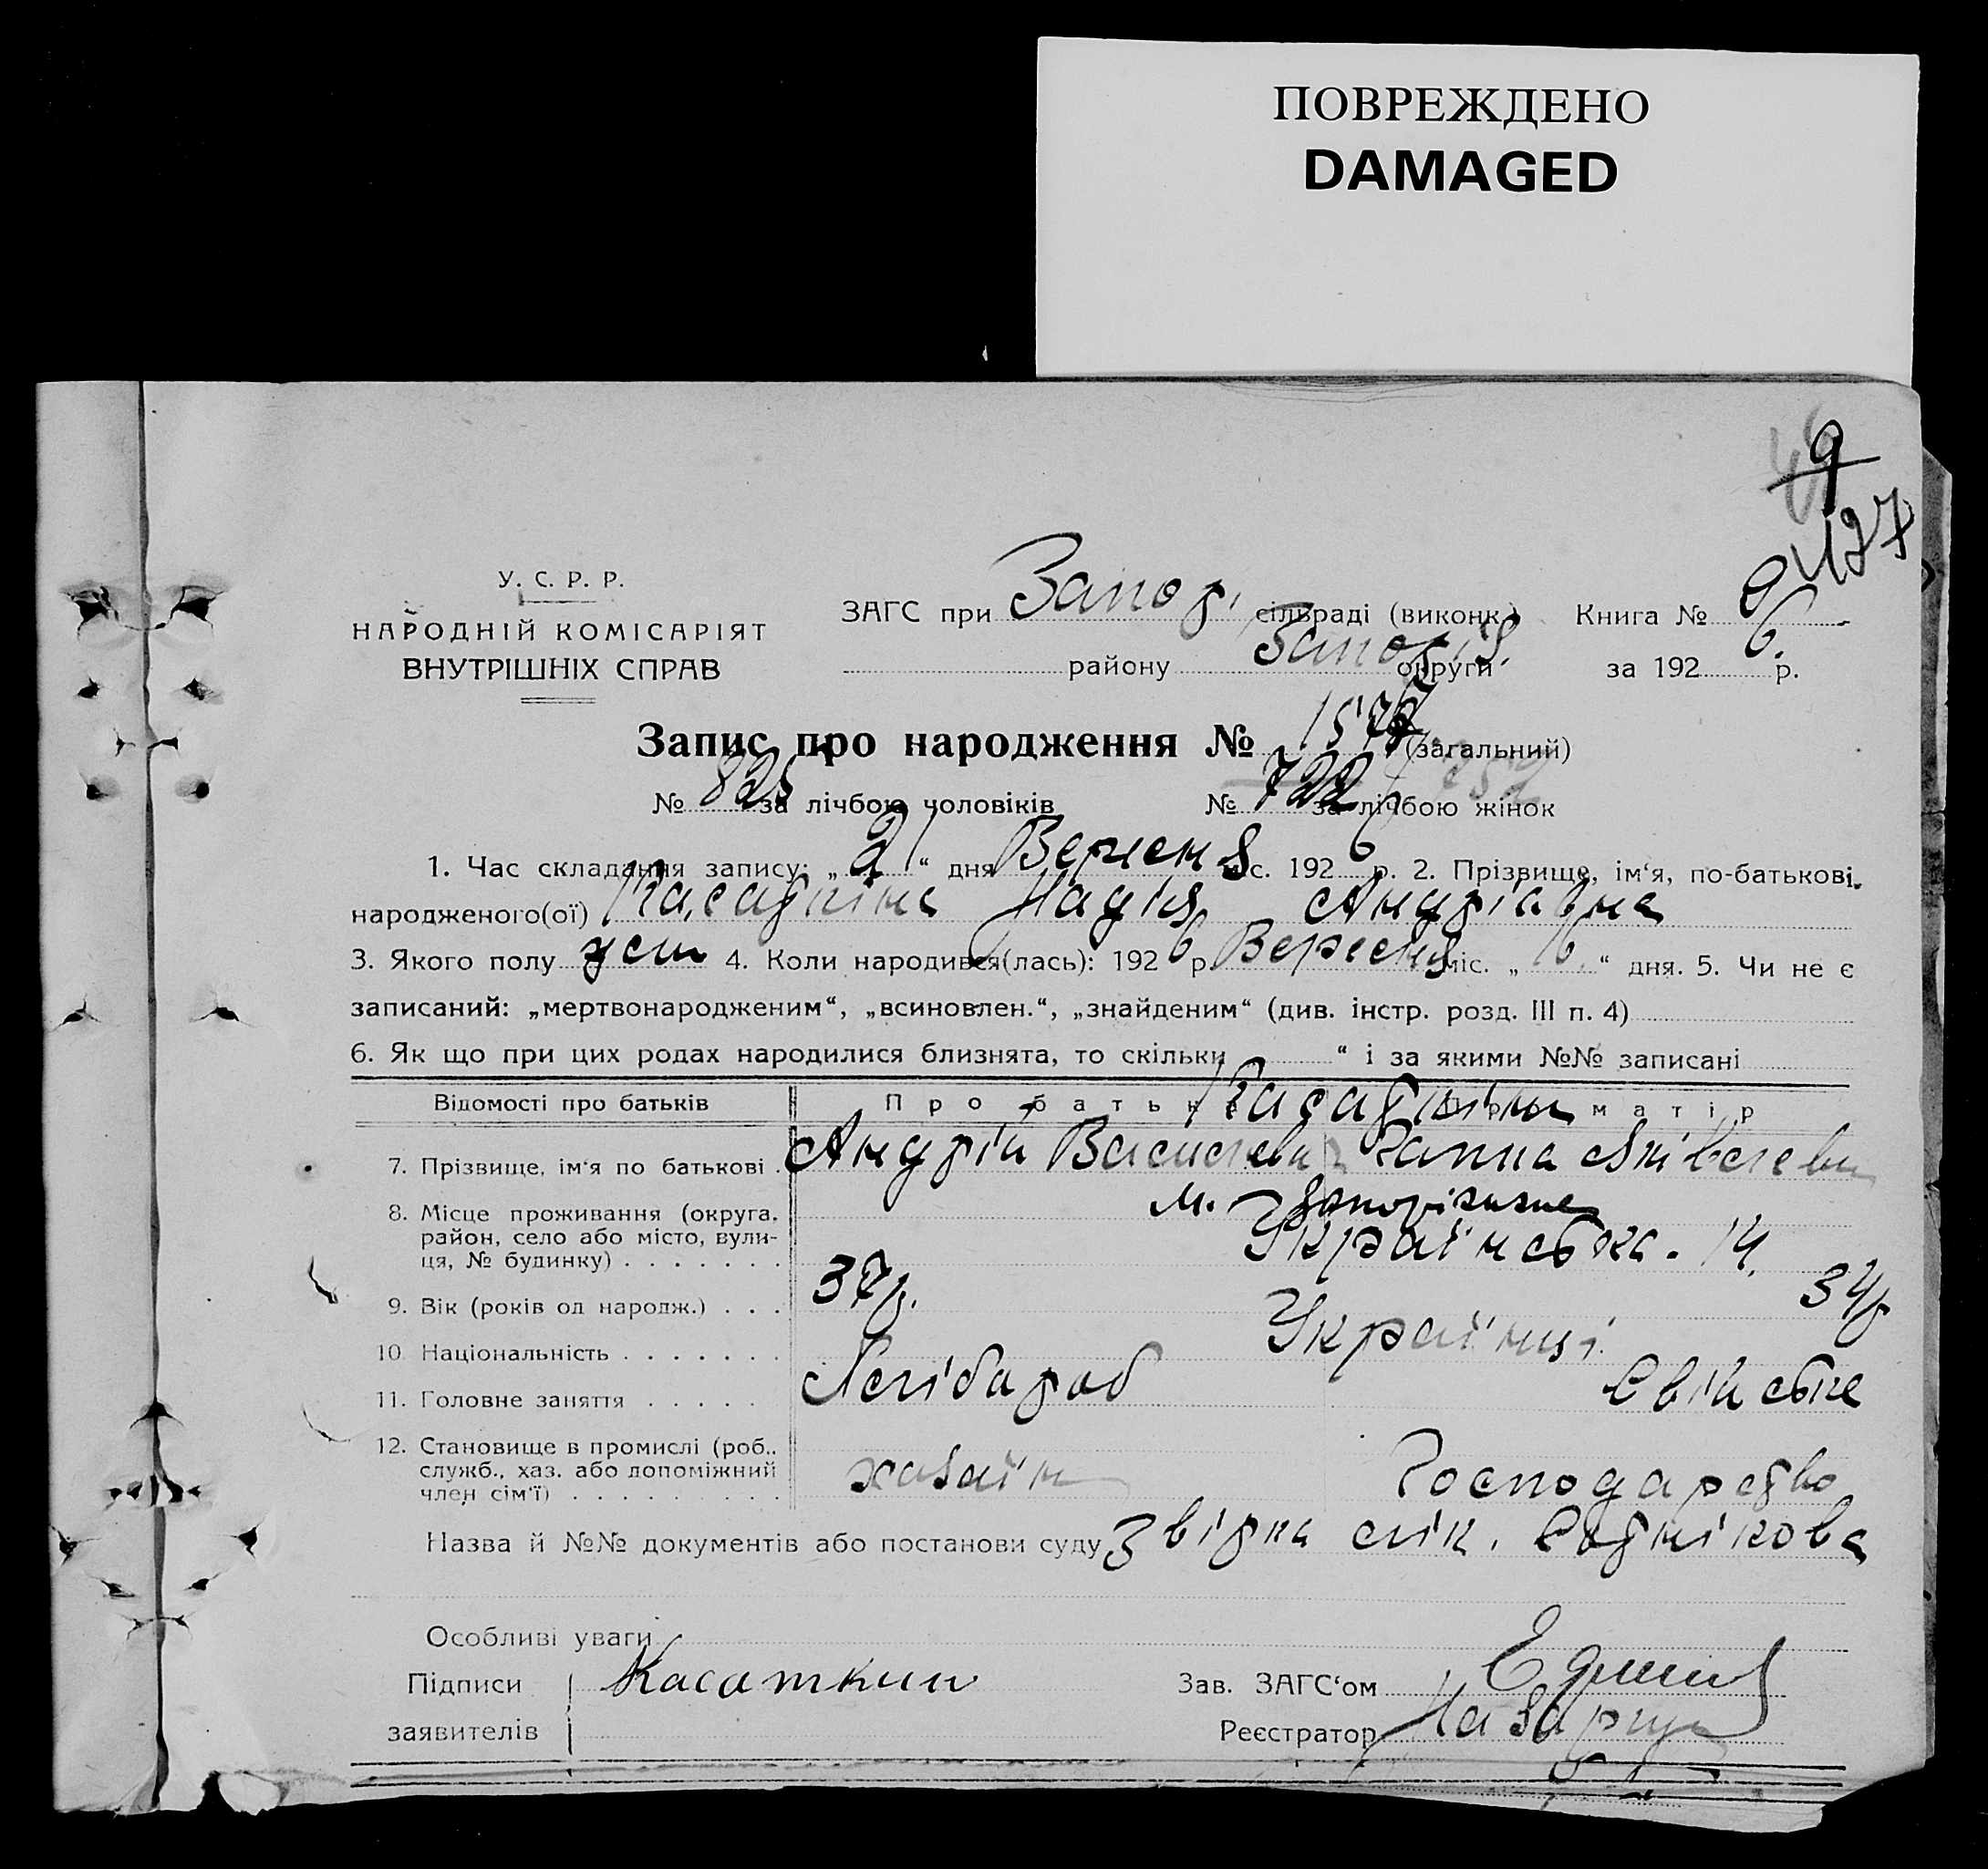 ПОВРЕЖДЕНО
DAMAGED
9
427
У. С. Р. Р.
НАРОДНІЙ КОМІСАРІЯТ
ВНУТРІШНІХ СПРАВ
ЗАГС при Запор. сільраді (виконк.) Книга № 9
району Запоріз. округи за 1926 р.
Запис про народження № (загальний)
№ 825 за лічбою чоловіків № 722 за лічбою жінок
1. Час складання запису: „21“ дня Вересня міс. 1926 р. 2. Прізвище, ім‘я, по-батькові
народженого(ої) Касаткіна Надія Андріівна
3. Якого полу жен 4. Коли народився(лась): 1926 р. Вересня міс. „6“ дня. 5. Чи не є
записаний: „мертвонародженим“, „всиновлен.“, „знайденим“ (див. інстр. розд. III п. 4)
6. Як що при цих родах народилися близнята, то скільки “ і за якими №№ записані
Касаткіни
Відомості про батьків Про батька Про матір
7. Прізвище, ім‘я по батькові Андрій Васильев Ганна Яківлевн
8. Місце проживання (округа, район, село або місто, вулиця, № будинку) м. Запоріжже
Українська. 14.
9. Вік (років од народж.) 37р. 34р
10. Національність Українці
11. Головне заняття Хлібароб Свійське
12. Становище в промислі (роб., служб., хаз. або допоміжний член сім‘ї) хазаїн Господарство
Назва й №№ документів або постанови суду Звірка Сотнікова
Особливі уваги
Підписи заявителів Касаткин Зав. ЗАГС‘ом
Реєстратор